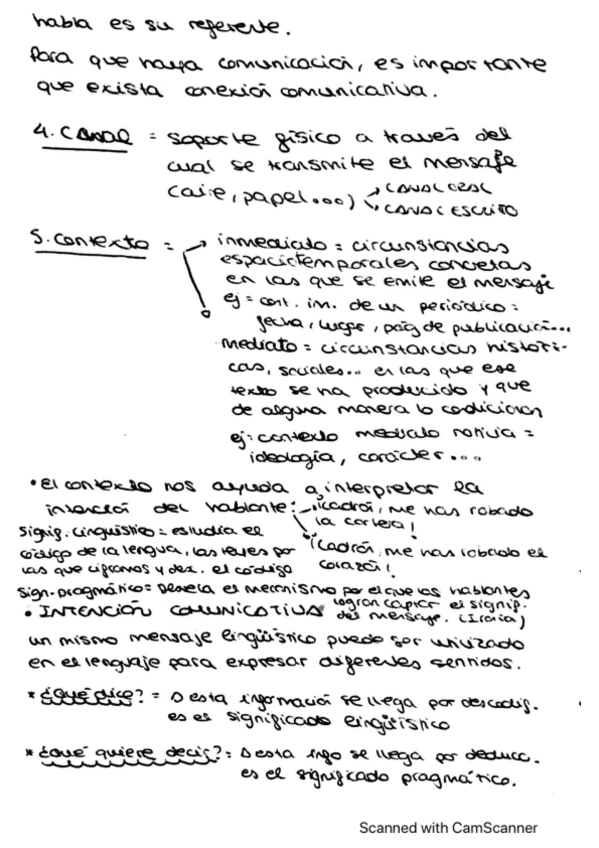 habla es su referente.
Para que haya comunicación, es importante
que exista conexión comunicativa.
4. CANAL = soporte físico a través del
cual se transmite el mensaje
(aire, papel...) → CANAL ORAL
→ CANAL ESCRITO
5. Contexto = → inmediato = circunstancias
espaciotemporales concretas
en las que se emite el mensaje
ej = cont. in. de un periódico:
fecha, lugar, pág de publicación...
mediato = circunstancias históri-
cas, sociales... en las que ese
texto se ha producido y que
de alguna manera lo condicionan
ej: contexto mediato noticia =
ideología, carácter...
• El contexto nos ayuda a interpretar la
intención del hablante: → ¡Ladrón, me has robado
la cartera!
Signif. Lingüístico = estudia el
código de la lengua, las leyes por
las que ciframos y des. el código
¡Ladrón, me has robado el
corazón!
Sign. pragmático = Desvela el mecanismo por el que los hablantes
logran captar el signip.
del mensaje. (Ironía)
• INTENCIÓN COMUNICATIVA
un mismo mensaje lingüístico puede ser utilizado
en el lenguaje para expresar diferentes sentidos.
* ¿Qué dice? = D esta información se llega por descodif.
es el significado lingüístico
* ¿Qué quiere decir? = D esta info se llega por deducc.
es el significado pragmático.
Scanned with CamScanner